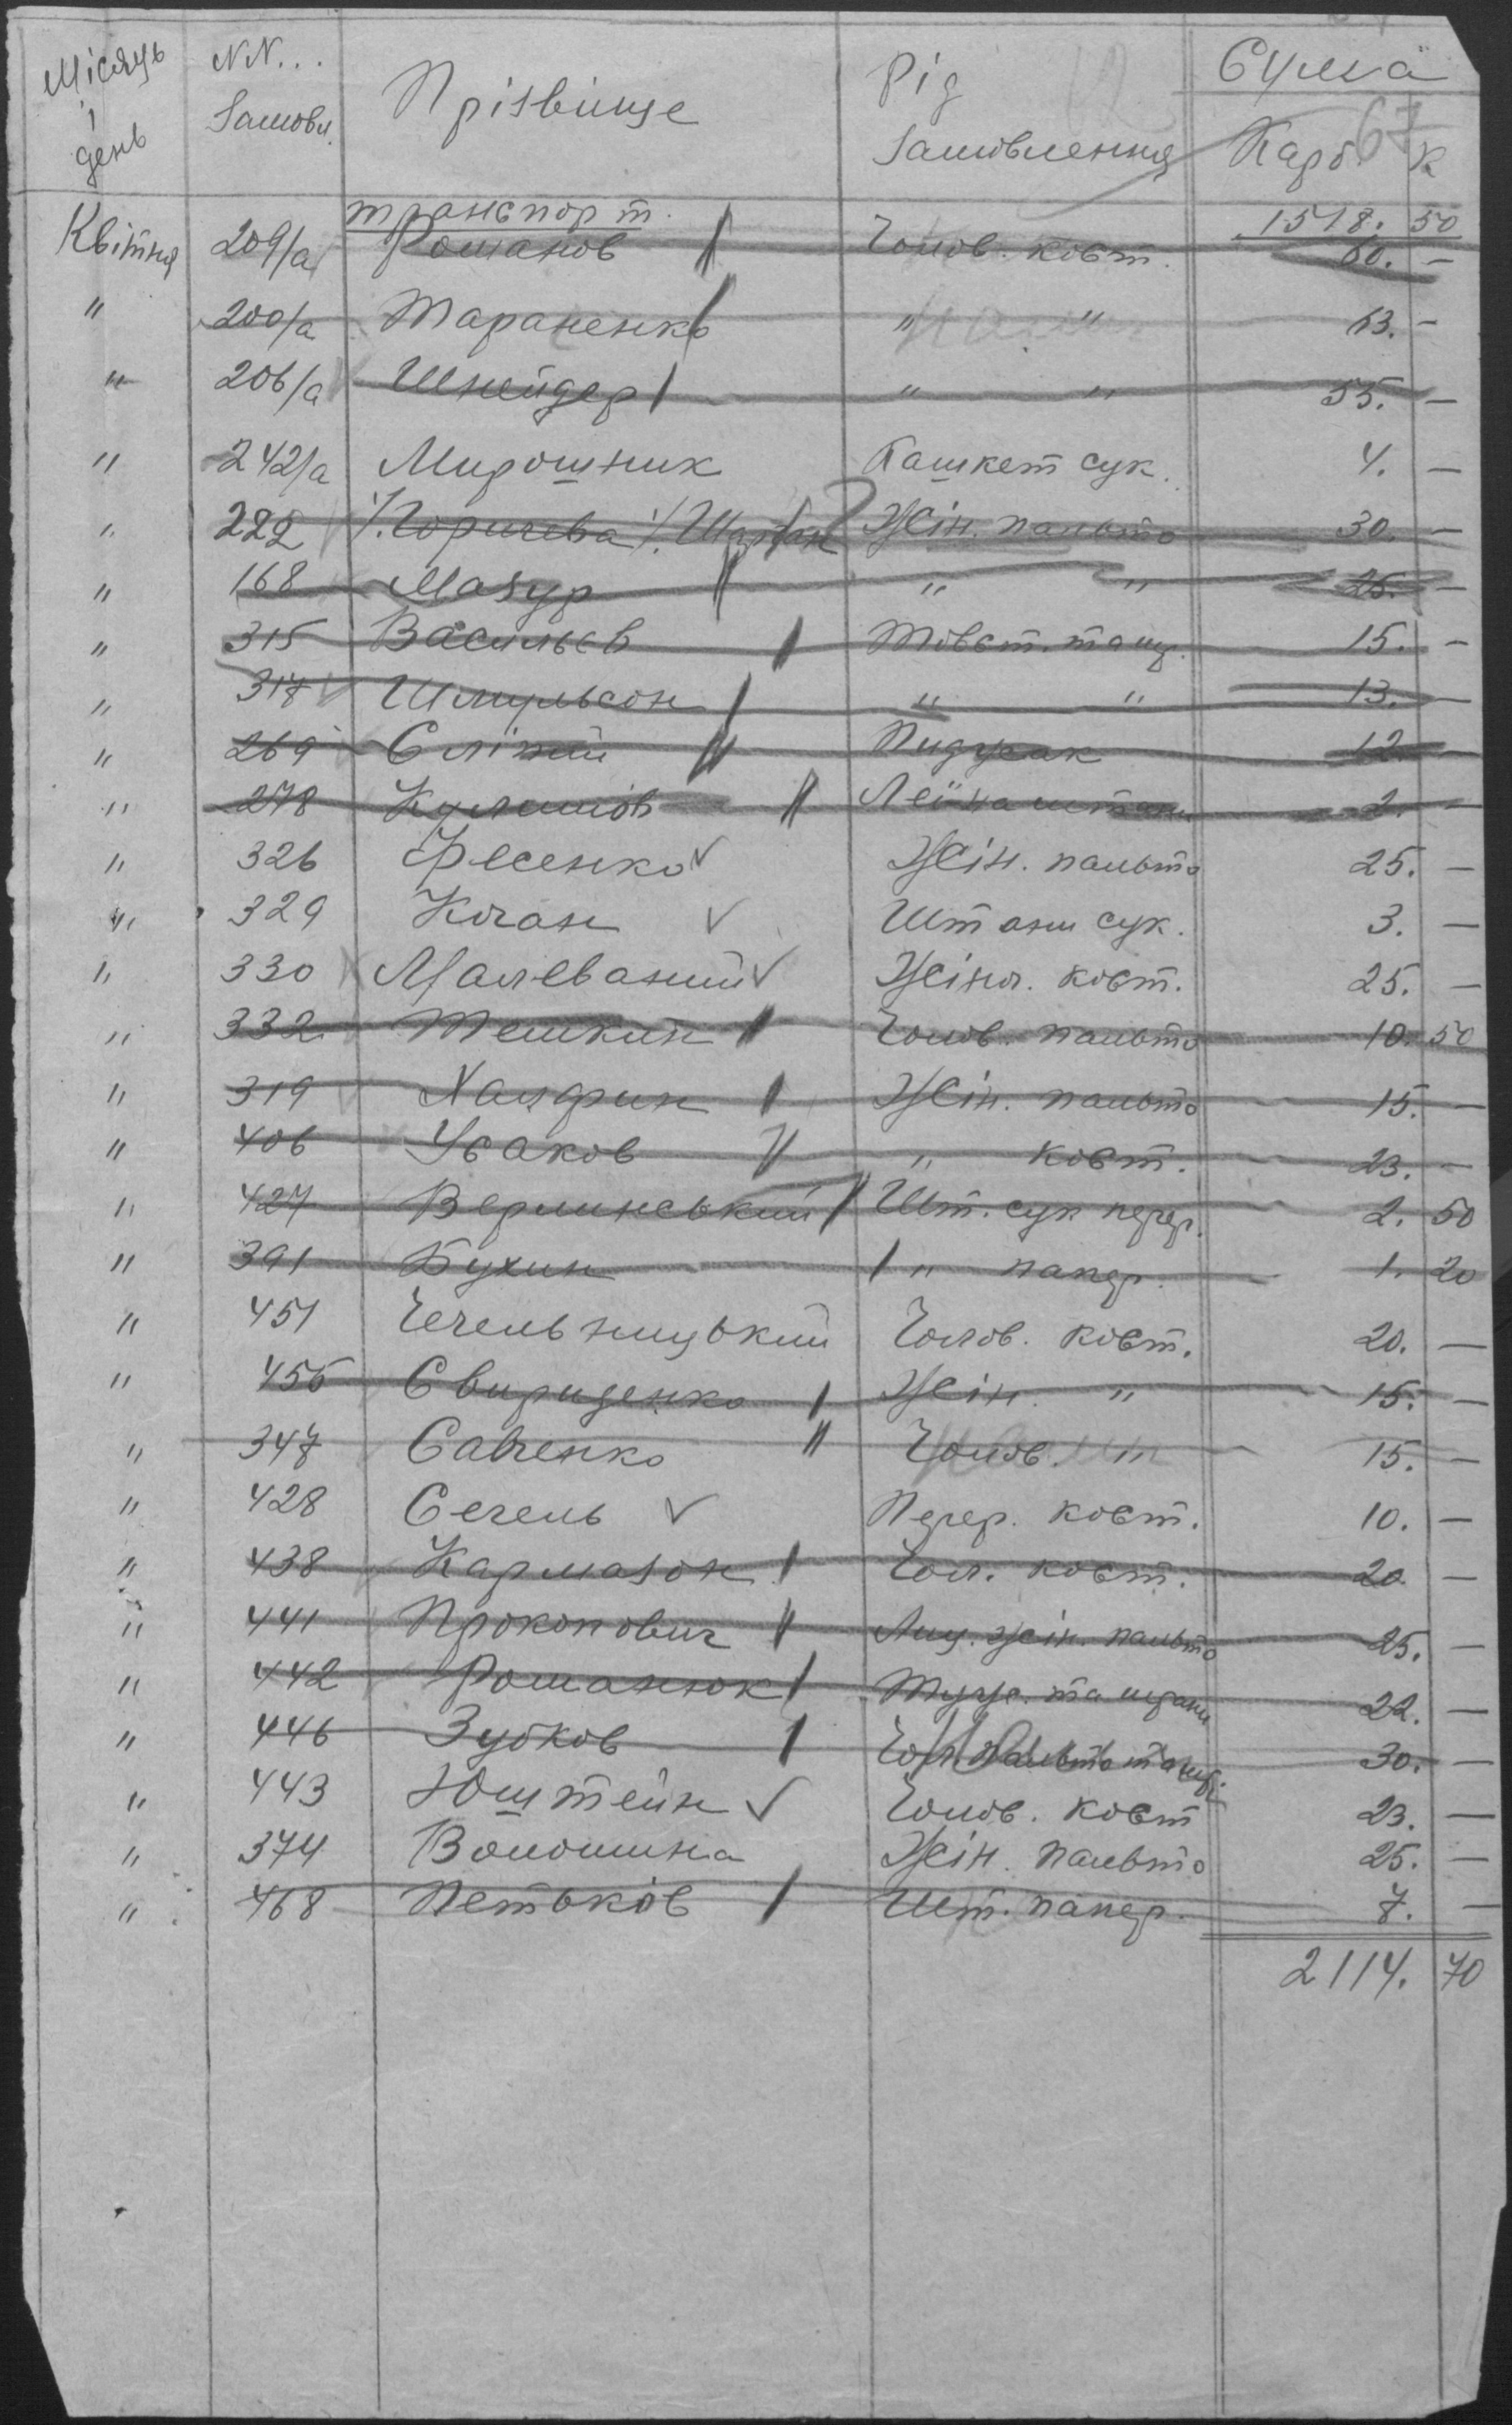 Місяць і день | NN... Замовл. | Прізвіще | Рід Замовлення | Сума Карб. К
67
транспорт. 1518. 50
Квітня 209/а Романов Чолов. кост. 60. —
" 200/а Тараненко " " 63. —
" 206/а Шнейдер " " 55. —
" 242/а Мирошник Кашкет сук. 4. —
" 222 Жін. пальто 30. —
" 168 Мазур " " 25. —
" 315 Васильєв Товст. 15. —
" 317 Шмульсон " " 13. —
" 269 Сліпий Пидусак 12. —
" 278 штани 2. —
" 326 Фесенко Жін. пальто 25. —
" 329 Коган Штани сук. 3. —
" 330 Малеваний Жіноч. кост. 25. —
" 332 Тешкин Чолов. пальто 10. 50
" 319 Халфин Жін. пальто 15. —
" 406 Усаков " кост. 23. —
" 427 Верлинський Шт. сук перер. 2. 50
" 391 Бухин " папер. 1. 20
" 451 Чечельницький Чолов. кост. 20. —
" 455 Свириденко Жін. " 15. —
" 347 Савченко Чолов. " 15. —
" 428 Сегель Перер. кост. 10. —
" 438 Кармазон Чол. кост. 20 —
" 441 Прокопович Лиц. жін. пальто 25. —
" 442 Романюк Тужур. та штани 22. —
" 446 Зубков Чол. пальто 30. —
" 443 Юштейн Чолов. кост 23. —
" 374 Волошина Жін. пальто 25. —
" 468 Петьков Шт. папер. 7. —
2114. 70